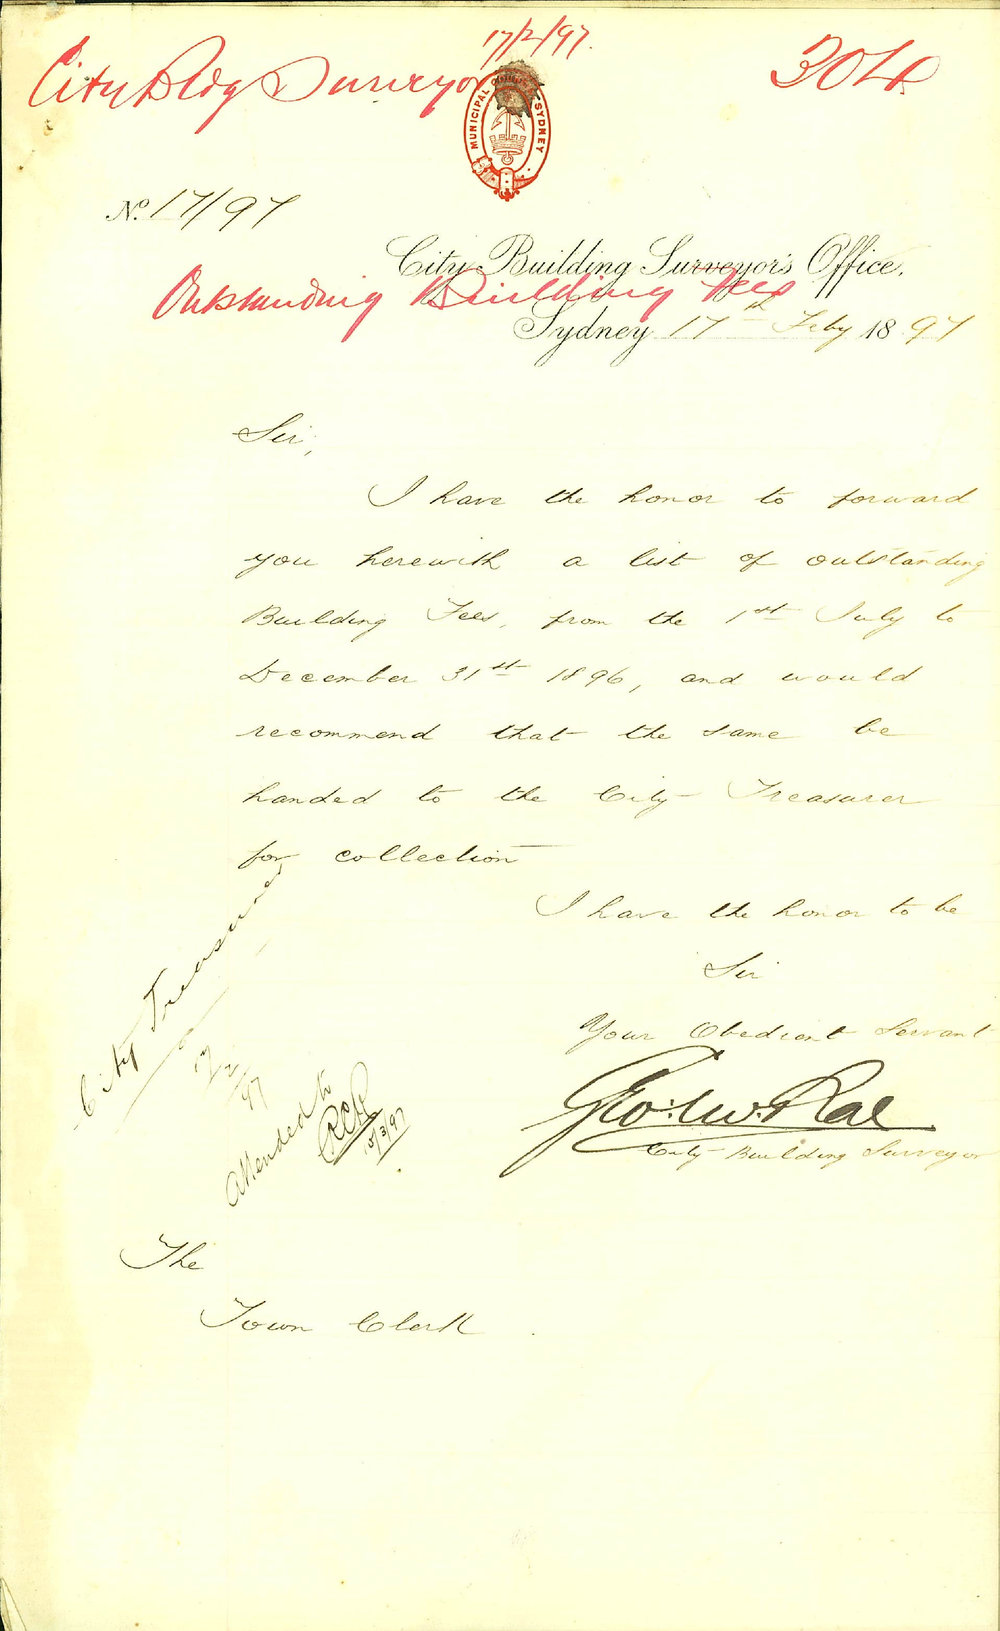 17/2/97.
City Bldg Surveyor
304
MUNICIPAL COUNCIL SYDNEY
No. 17/97
City Building Surveyor's Office,
Outstanding Building Fees
Sydney 17th Feby 1897
Sir,
I have the honor to forward
you herewith a list of outstanding
Building Fees, from the 1st July to
December 31st 1896, and would
recommend that the same be
handed to the City Treasurer
for collection
I have the honor to be
Sir
Your Obedient Servant
Geo: McRae
City Building Surveyor
City Treasurer
17/2/97
Attended to
5/3/97
The
Town Clerk